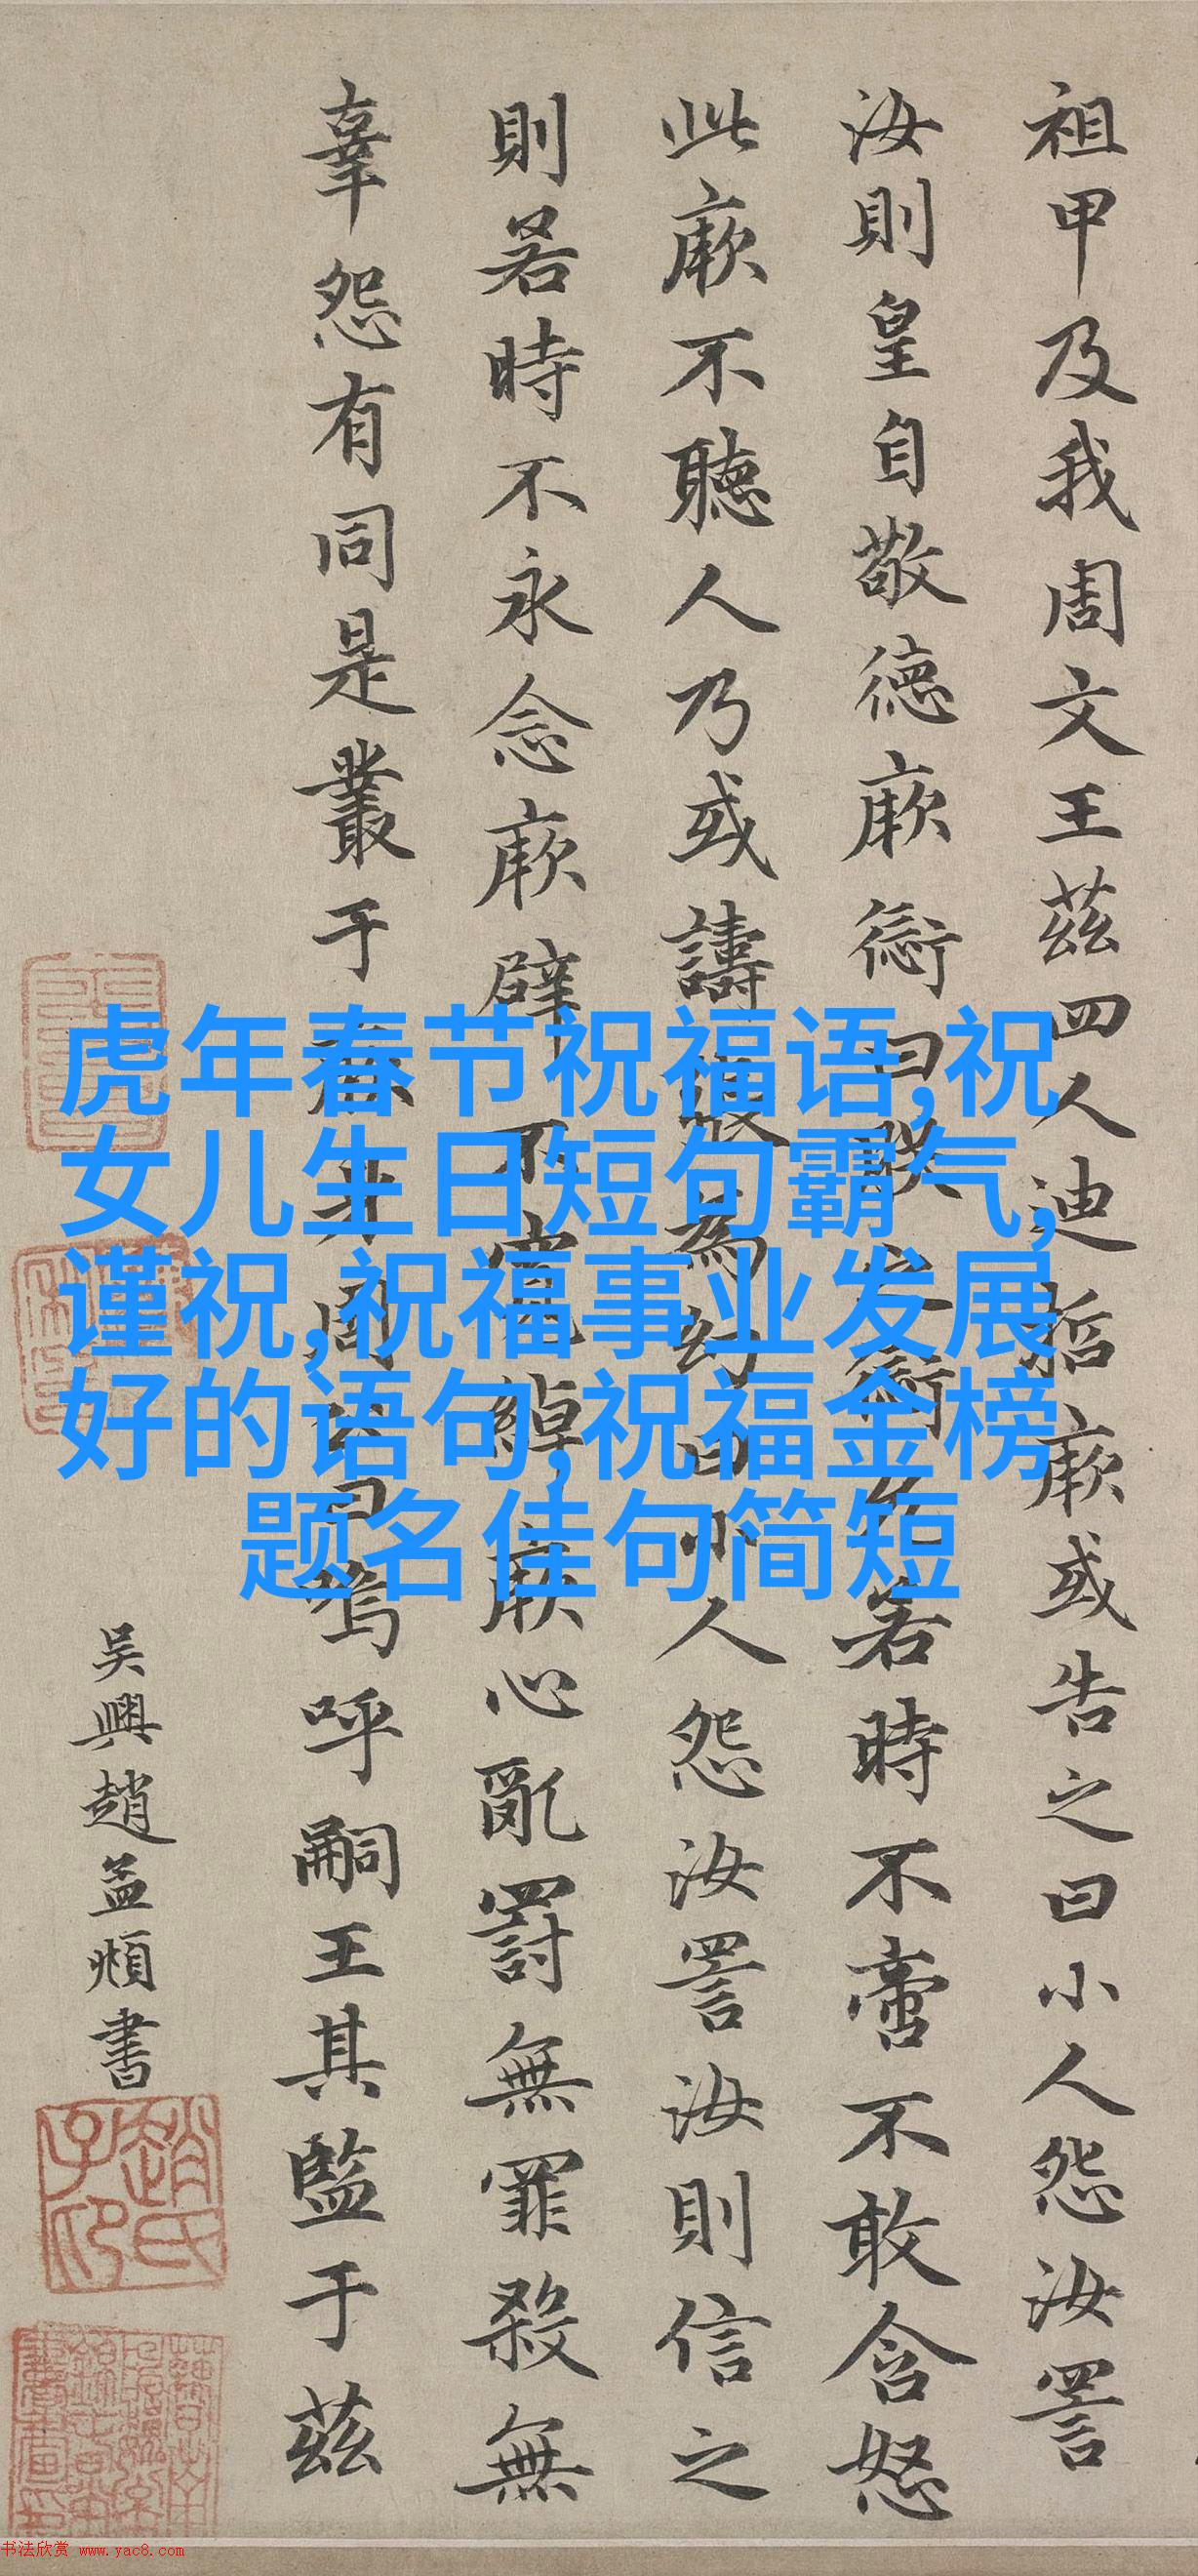 祖甲及我周文王茲四人迪哲厥或告之曰小人怨汝詈
汝則皇自敬德厥愆曰朕之愆允若時不啻不敢含怒
此厥不聽人乃或譸張為幻曰小人怨汝詈汝則信之
則若時不永念厥辟不寬綽厥心亂罰無罪殺無
辜怨有同是叢于厥身周公曰嗚呼嗣王其監于茲
吴興趙孟頫書
趙氏子昂
虎年春节祝福语,祝
女儿生日短句霸气,
谨祝,祝福事业发展
好的语句,祝福金榜
题名佳句简短
书法欣赏 www.yac8.com